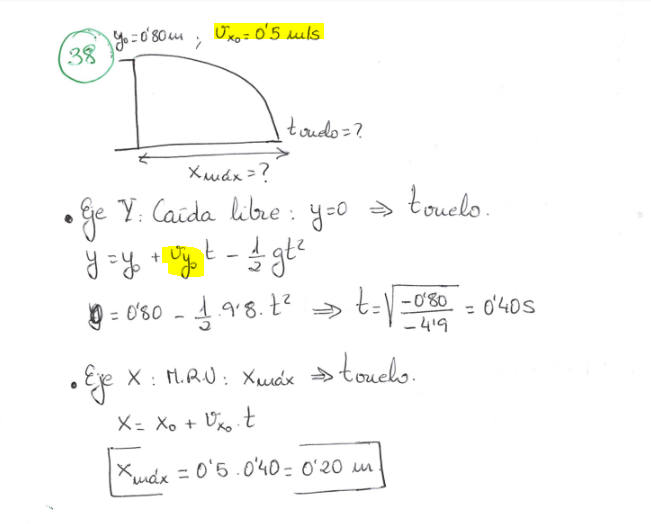 38
y₀ = 0'80 m ; Vx₀ = 0'5 m/s
t vuelo = ?
x máx = ?
• Eje Y: Caída libre: y=0 ⇒ t vuelo.
y = y₀ + Vy₀ t - 1/2 gt²
0 = 0'80 - 1/2 . 9'8 . t² ⇒ t = √(-0'80 / -4'9) = 0'40 s
• Eje X : M.R.U : x máx ⇒ t vuelo.
x = x₀ + Vx₀ . t
x máx = 0'5 . 0'40 = 0'20 m